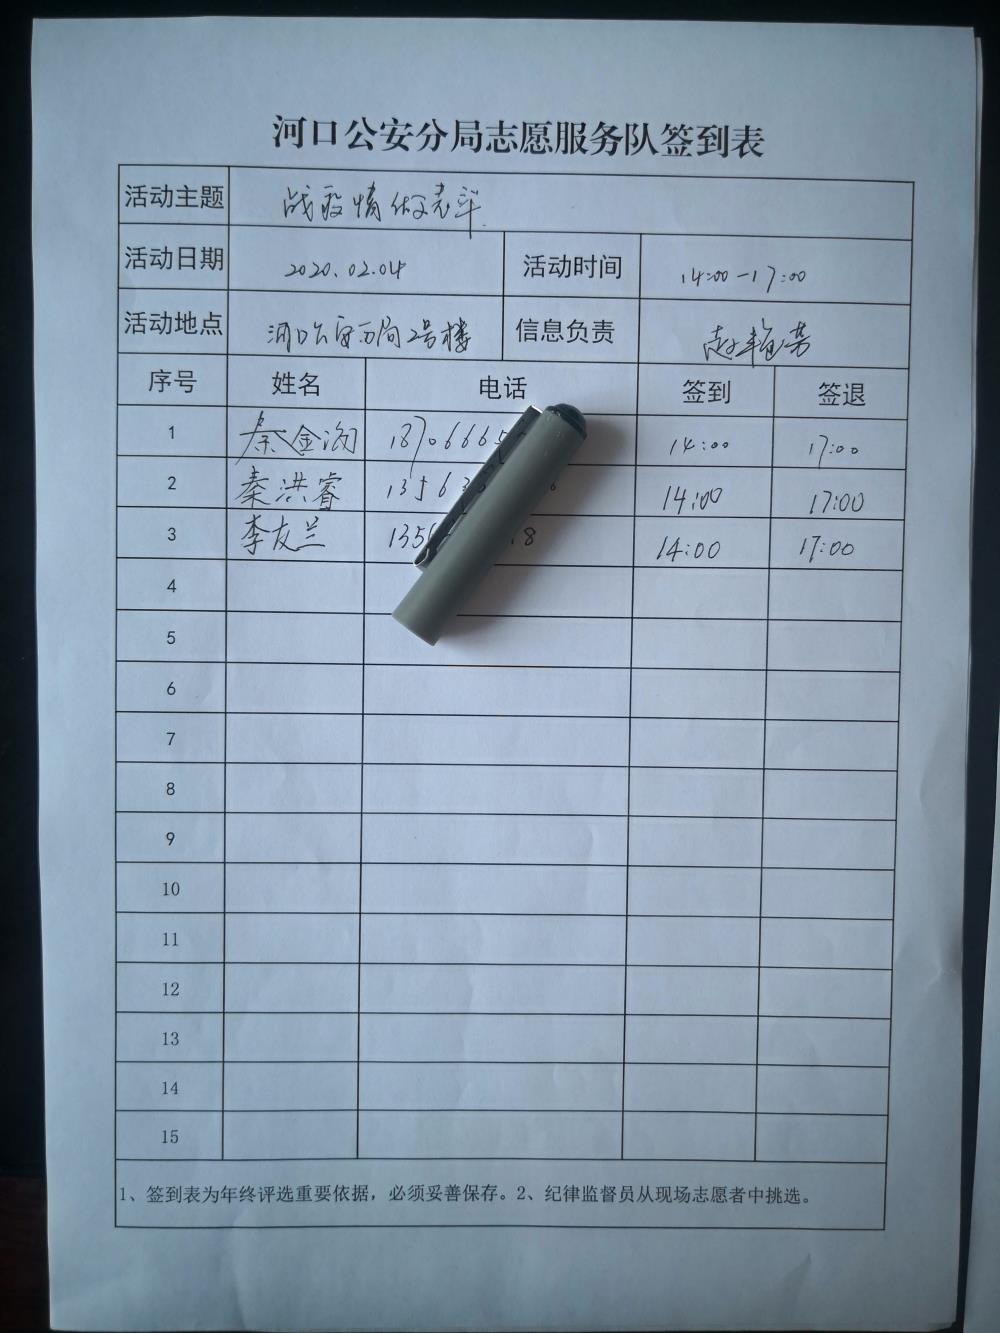 河口公安分局志愿服务队签到表
活动主题 战疫情做表率
活动日期 2020.02.04 活动时间 14:00-17:00
活动地点 河口公安分局2号楼 信息负责
序号 姓名 电话 签到 签退
1 秦金 1870666 14:00 17:00
2 秦洪睿 13563 6 14:00 17:00
3 李友兰 135 18 14:00 17:00
4
5
6
7
8
9
10
11
12
13
14
15
1、签到表为年终评选重要依据，必须妥善保存。2、纪律监督员从现场志愿者中挑选。